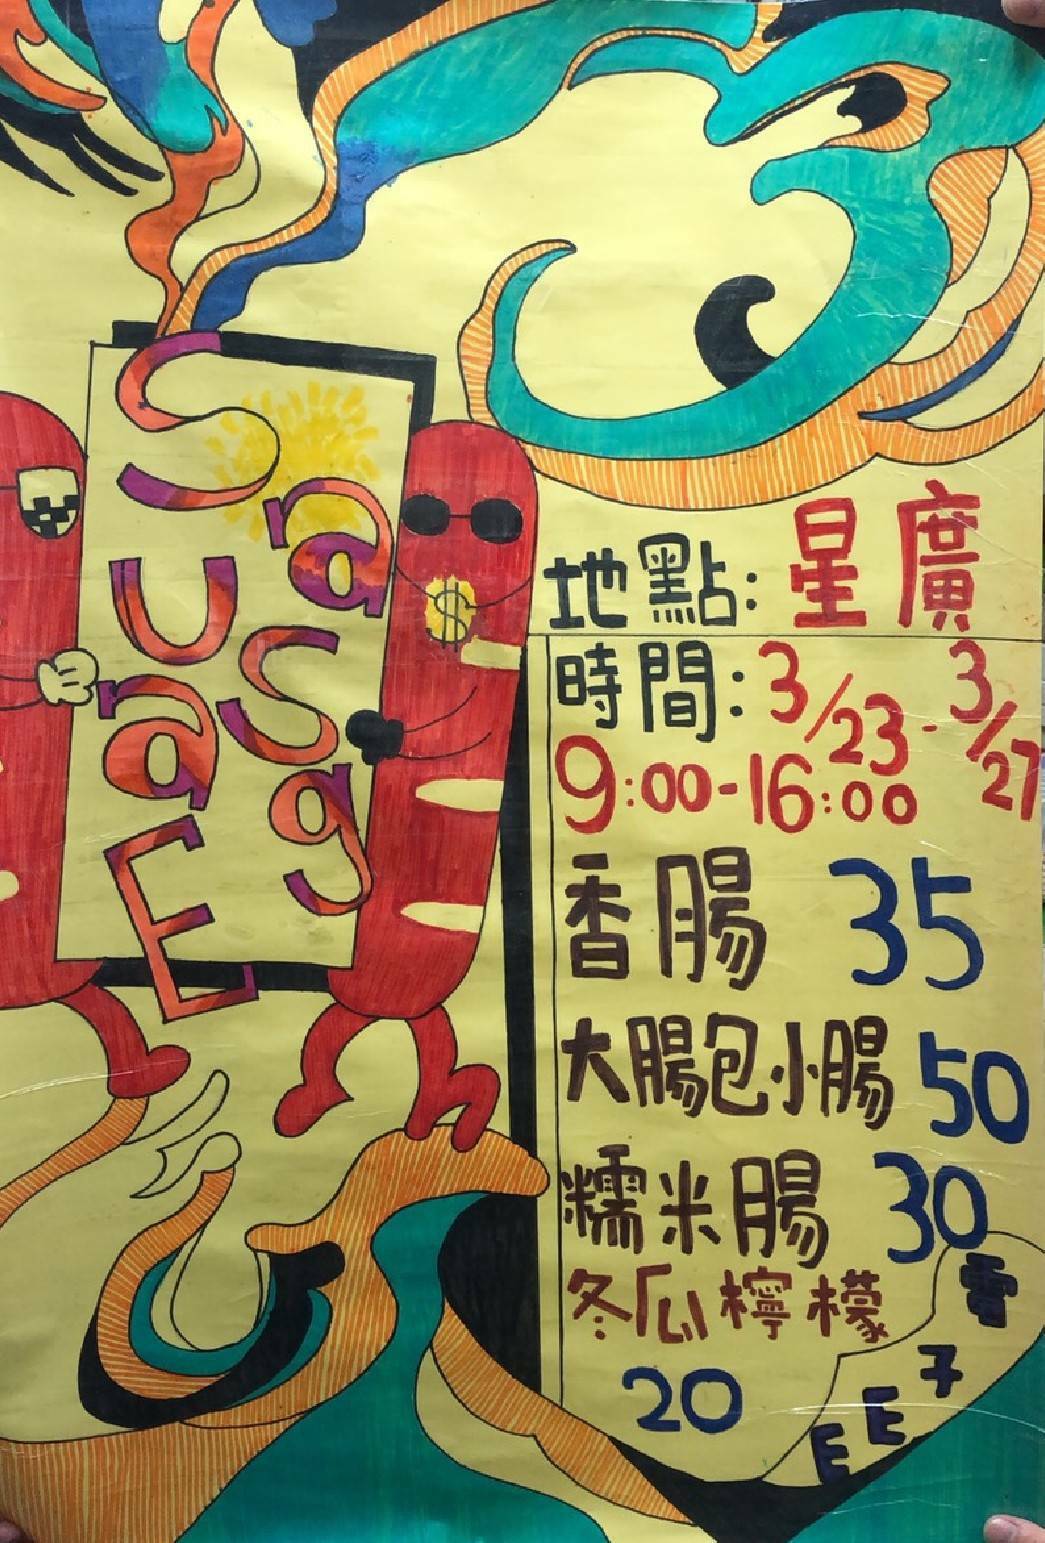 Sausage
Sausage
地點：星廣
時間：3/23-3/27
9:00-16:00
香腸 35
大腸包小腸 50
糯米腸 30
冬瓜檸檬
20
電
子
E
E